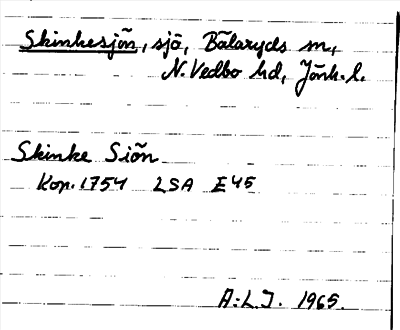 Skinkesjön, sjö, Bälaryds sn,
N. Vedbo hd, Jönk. l.
Skinke Siön
Kop. 1754 LSA E45
A:L.J. 1965.